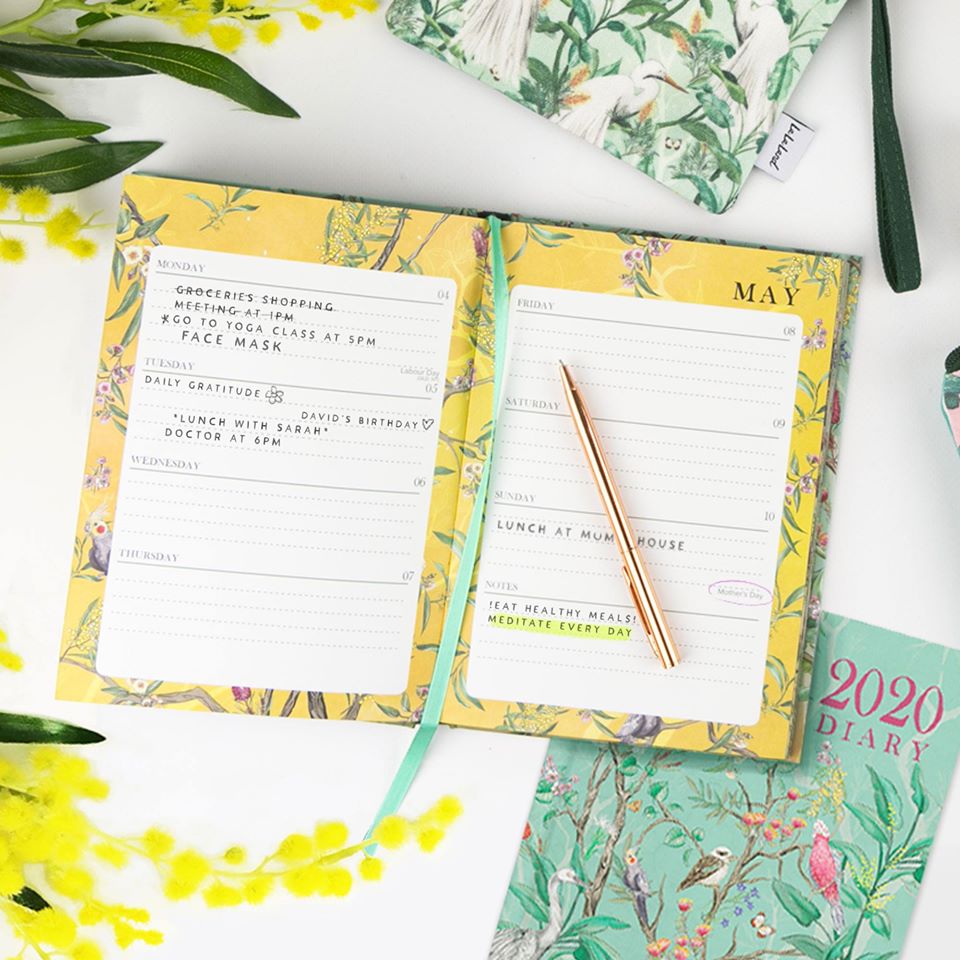 LaLaLand
MONDAY
04
GROCERIES SHOPPING
MEETING AT 1PM
*GO TO YOGA CLASS AT 5PM
FACE MASK
TUESDAY
Labour Day
05
DAILY GRATITUDE
DAVID'S BIRTHDAY
*LUNCH WITH SARAH*
DOCTOR AT 6PM
WEDNESDAY
06
THURSDAY
07
MAY
FRIDAY
08
SATURDAY
09
SUNDAY
10
LUNCH AT MUM HOUSE
NOTES
Mother's Day
!EAT HEALTHY MEALS!
MEDITATE EVERY DAY
2020
DIARY